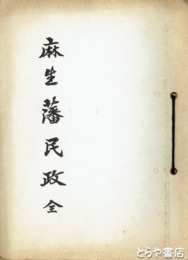 麻生藩民政 全
とらや書店